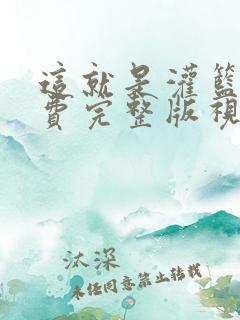 這就是灌籃
費完整版視
汰深
未經同意禁止轉載